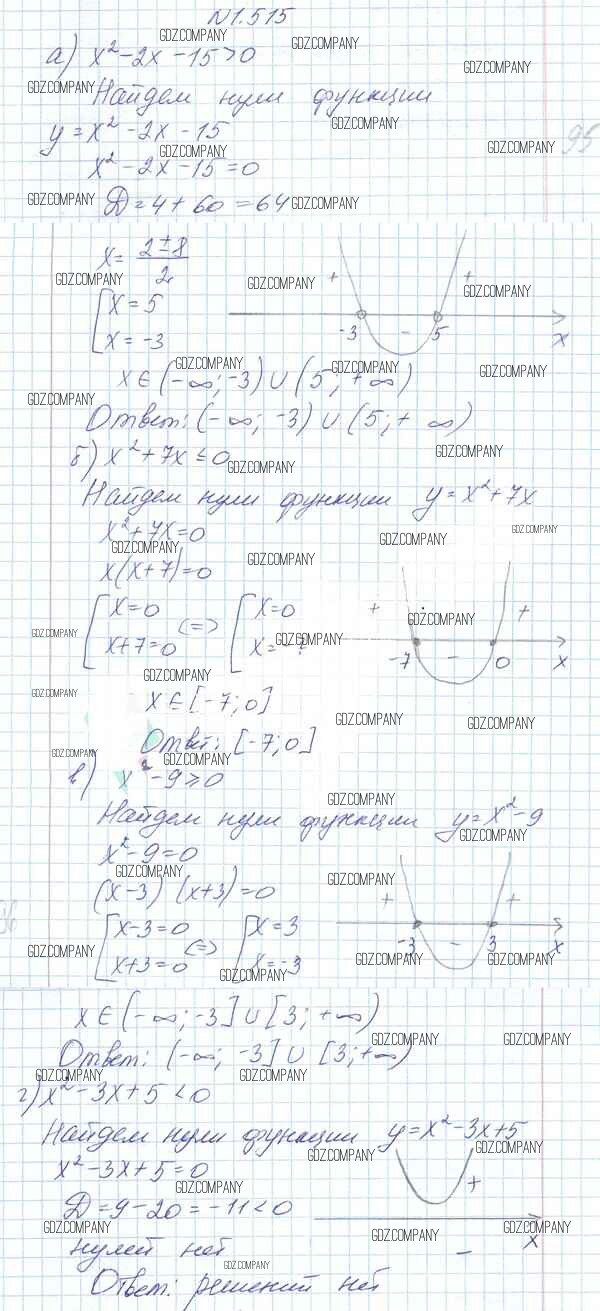 N1.515
а) x² - 2x - 15 > 0
Найдем нули функции
y = x² - 2x - 15
x² - 2x - 15 = 0
Д = 4 + 60 = 64
x = (2 ± 8)/2
[ x = 5
[ x = -3
+ - +
-3 5 x
x ∈ (-∞; -3) ∪ (5; +∞)
Ответ: (-∞; -3) ∪ (5; +∞)
б) x² + 7x ≤ 0
Найдем нули функции y = x² + 7x
x² + 7x = 0
x(x + 7) = 0
[ x = 0 <=> [ x = 0
[ x + 7 = 0 [ x = -7
+ - +
-7 0 x
x ∈ [-7; 0]
Ответ: [-7; 0]
в) x² - 9 ≥ 0
Найдем нули функции y = x² - 9
x² - 9 = 0
(x - 3) (x + 3) = 0
[ x - 3 = 0 <=> [ x = 3
[ x + 3 = 0 [ x = -3
+ - +
-3 3 x
x ∈ (-∞; -3] ∪ [3; +∞)
Ответ: (-∞; -3] ∪ [3; +∞)
г) x² - 3x + 5 < 0
Найдем нули функции y = x² - 3x + 5
x² - 3x + 5 = 0
Д = 9 - 20 = -11 < 0
+
- x
нулей нет
Ответ: решений нет
GDZ.COMPANY